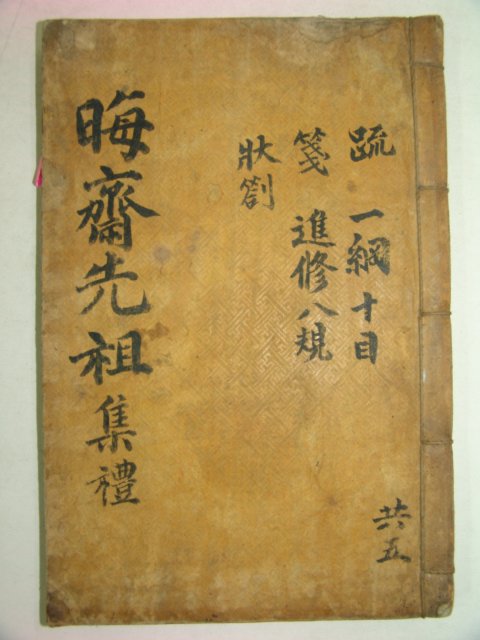 晦齋先祖集 禮
疏 一綱十目
箋 進修八規
狀劄
共五